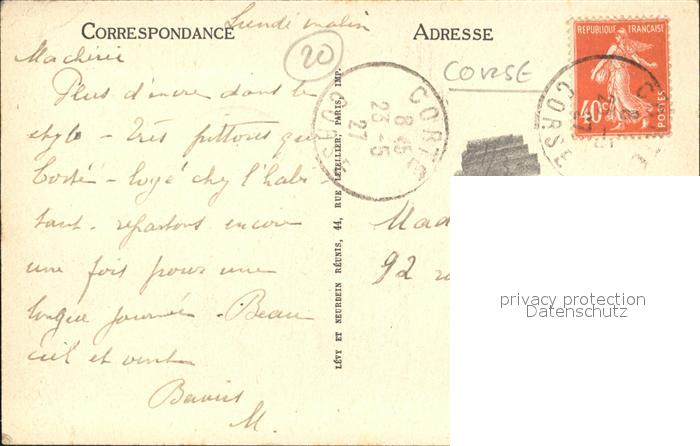 Lundi matin
CORRESPONDANCE
ADRESSE
20
CORSE
RÉPUBLIQUE FRANÇAISE
40c
POSTES
CORTE
8-45
23-5
27
CORSE
CORSE
Ma chérie
Plus d'encre dans le
stylo - Très pittoresque
Corté - logé chez l'habi-
tant - repartons encore
une fois pour une
longue journée - Beau
ciel et vent
Baisers
M.
LÉVY ET NEURDEIN RÉUNIS, 44, RUE LETELLIER, PARIS, IMP.
Mad
92
privacy protection
Datenschutz